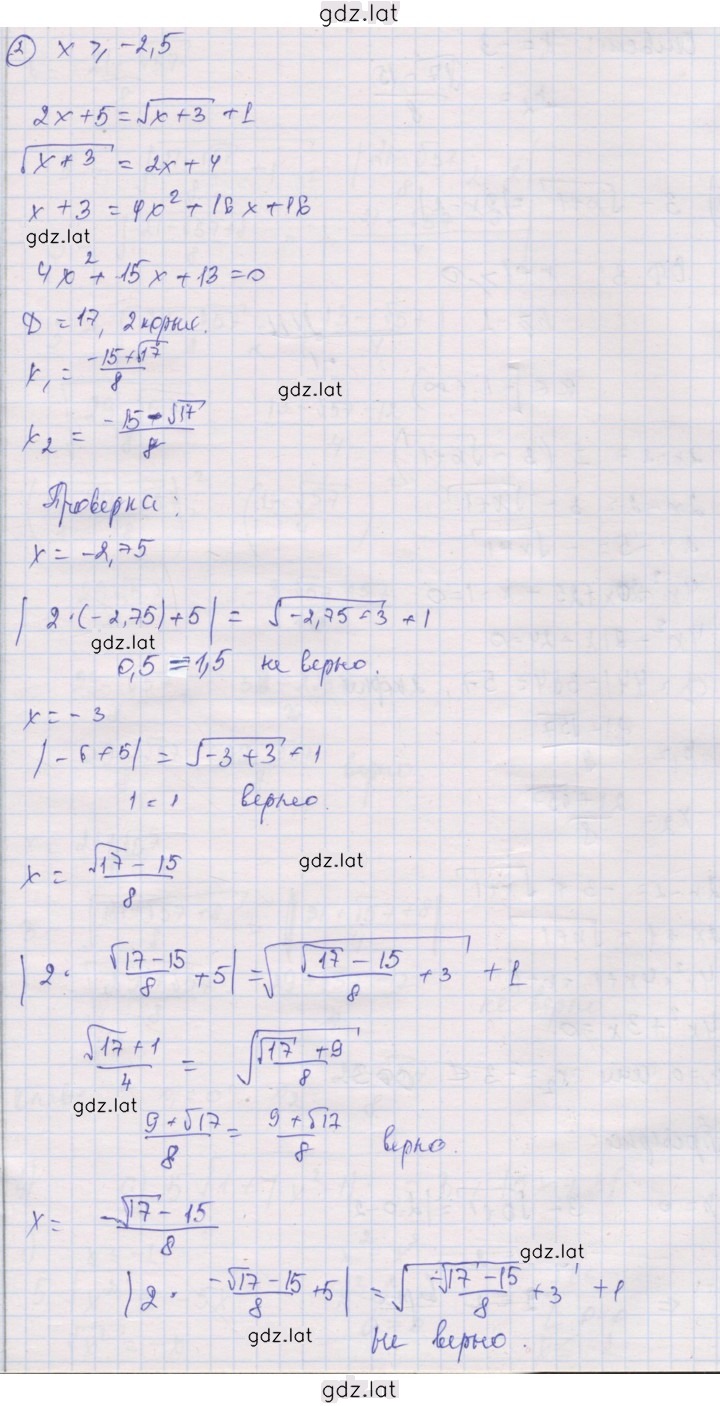 gdz.lat
② x ⩾ -2,5
2x+5 = √(x+3) +1
√(x+3) = 2x+4
x+3 = 4x²+16x+16
gdz.lat
4x²+15x+13=0
D=17, 2 корня.
x₁ = (-15+√17)/8
gdz.lat
x₂ = (-15-√17)/8
Проверка:
x = -2,75
|2·(-2,75)+5| = √(-2,75+3) +1
gdz.lat
0,5 = 1,5 не верно.
x = -3
|-6+5| = √(-3+3)+1
1 = 1 верно.
gdz.lat
x = (√17-15)/8
|2·(√17-15)/8+5| = √((√17-15)/8+3) +1
(√17+1)/4 = √((√17+9)/8)
gdz.lat
(9+√17)/8 = (9+√17)/8 верно.
x = (-√17-15)/8
gdz.lat
|2·(-√17-15)/8+5| = √((-√17-15)/8+3) +1
gdz.lat
не верно.
gdz.lat